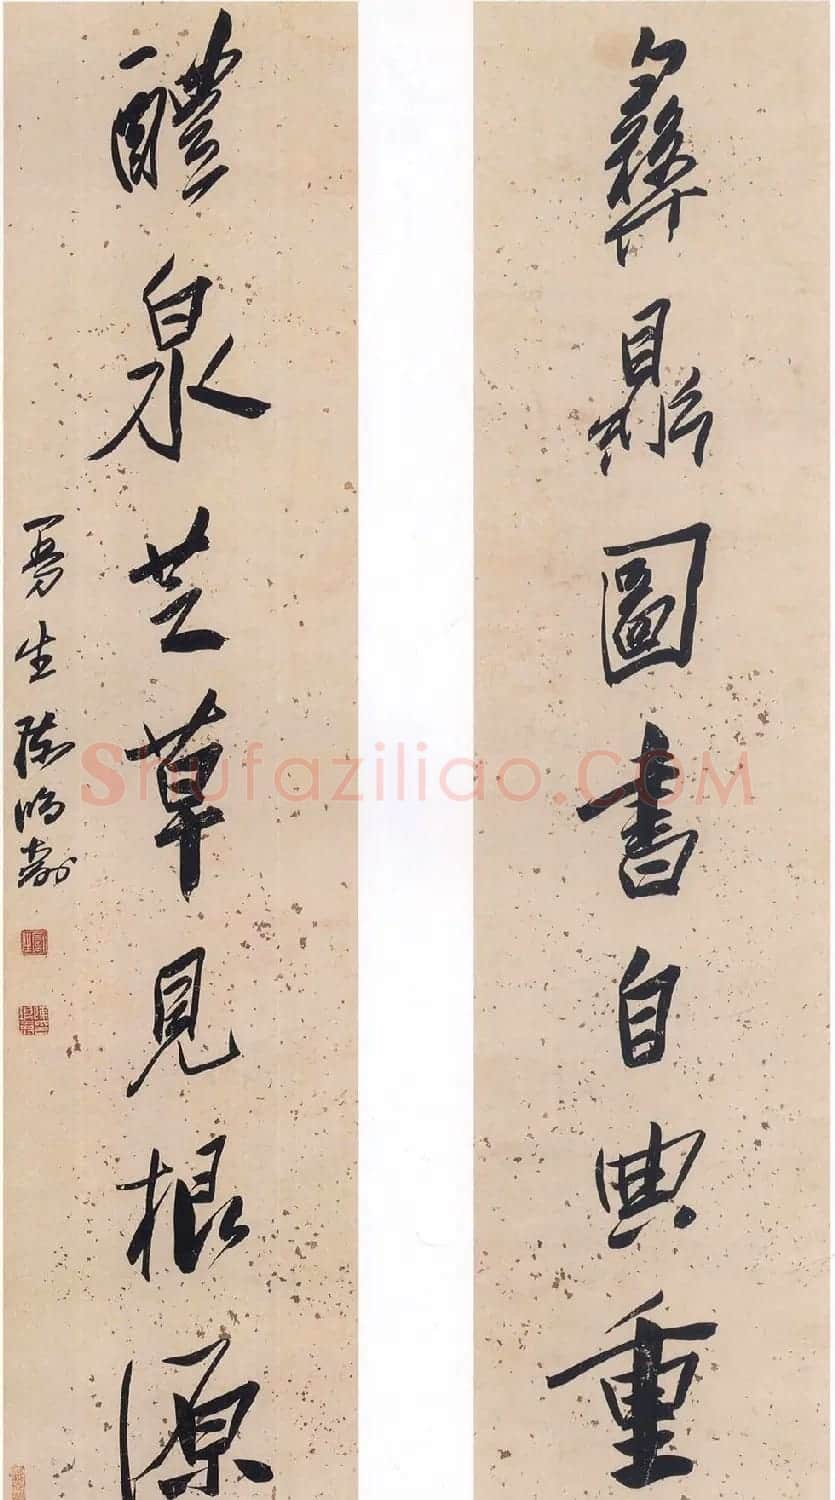 彝鼎圖書自典重
醴泉芝草見根源
曼生陳鴻壽
Shufaziliao.COM